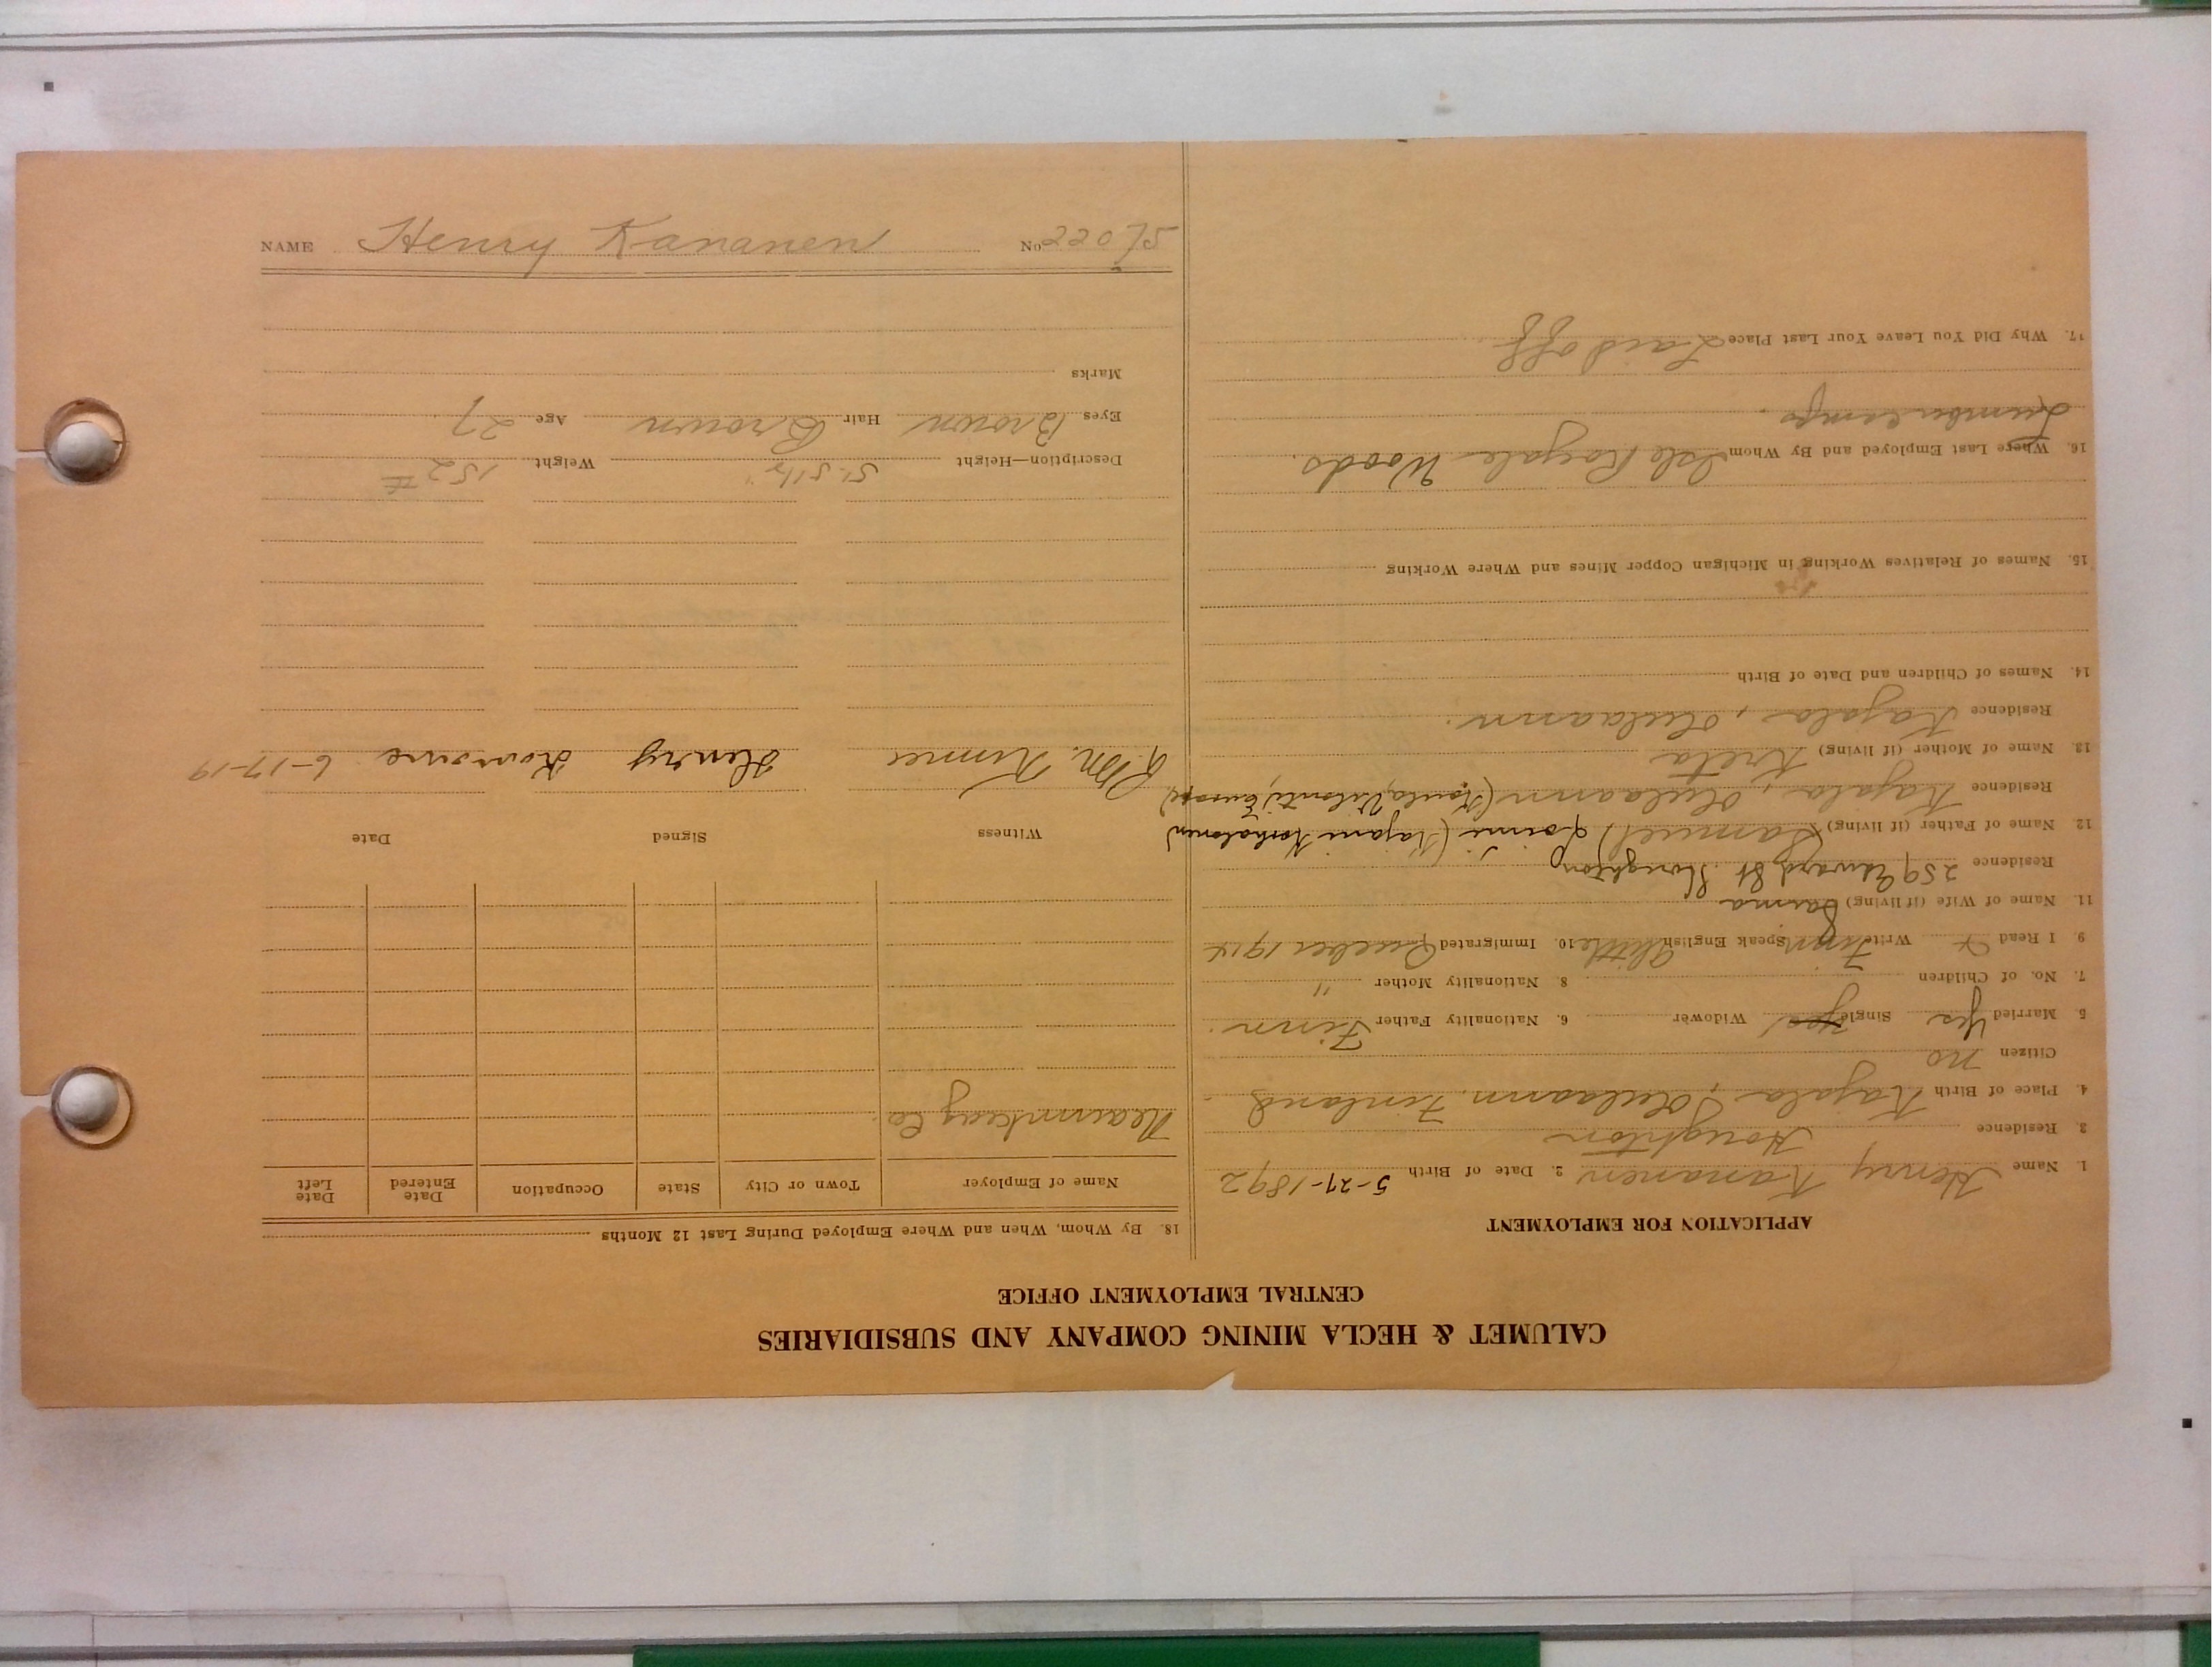 CALUMET & HECLA MINING COMPANY AND SUBSIDIARIES
CENTRAL EMPLOYMENT OFFICE
APPLICATION FOR EMPLOYMENT
1. Name Henry Kananen 2. Date of Birth 5-27-1892
3. Residence Houghton
4. Place of Birth Kajala, Oulaann. Finland
Citizen no
5. Married Yes Single yes Widower 6. Nationality Father Finn.
7. No. of Children 8. Nationality Mother "
9. I Read Write Finn Speak English little 10. Immigrated 1914
11. Name of Wife (if living)
Residence 259 Edward St. Houghton
12. Name of Father (if living) Samuel,
Residence Kajala, Oulaann
13. Name of Mother (if living) Kreta
Residence Kajala, Oulaann.
14. Names of Children and Date of Birth
15. Names of Relatives Working in Michigan Copper Mines and Where Working
16. Where Last Employed and By Whom Isle Royale Woods.
Lumber camps.
17. Why Did You Leave Your Last Place Laid off
18. By Whom, When and Where Employed During Last 12 Months
Name of Employer Town or City State Occupation Date Entered Date Left
Witness Signed Date
Henry 6-17-19
Description—Height 5' 5 1/2" Weight 152 #
Eyes Brown Hair Brown Age 27
Marks
NAME Henry Kananen No 22075